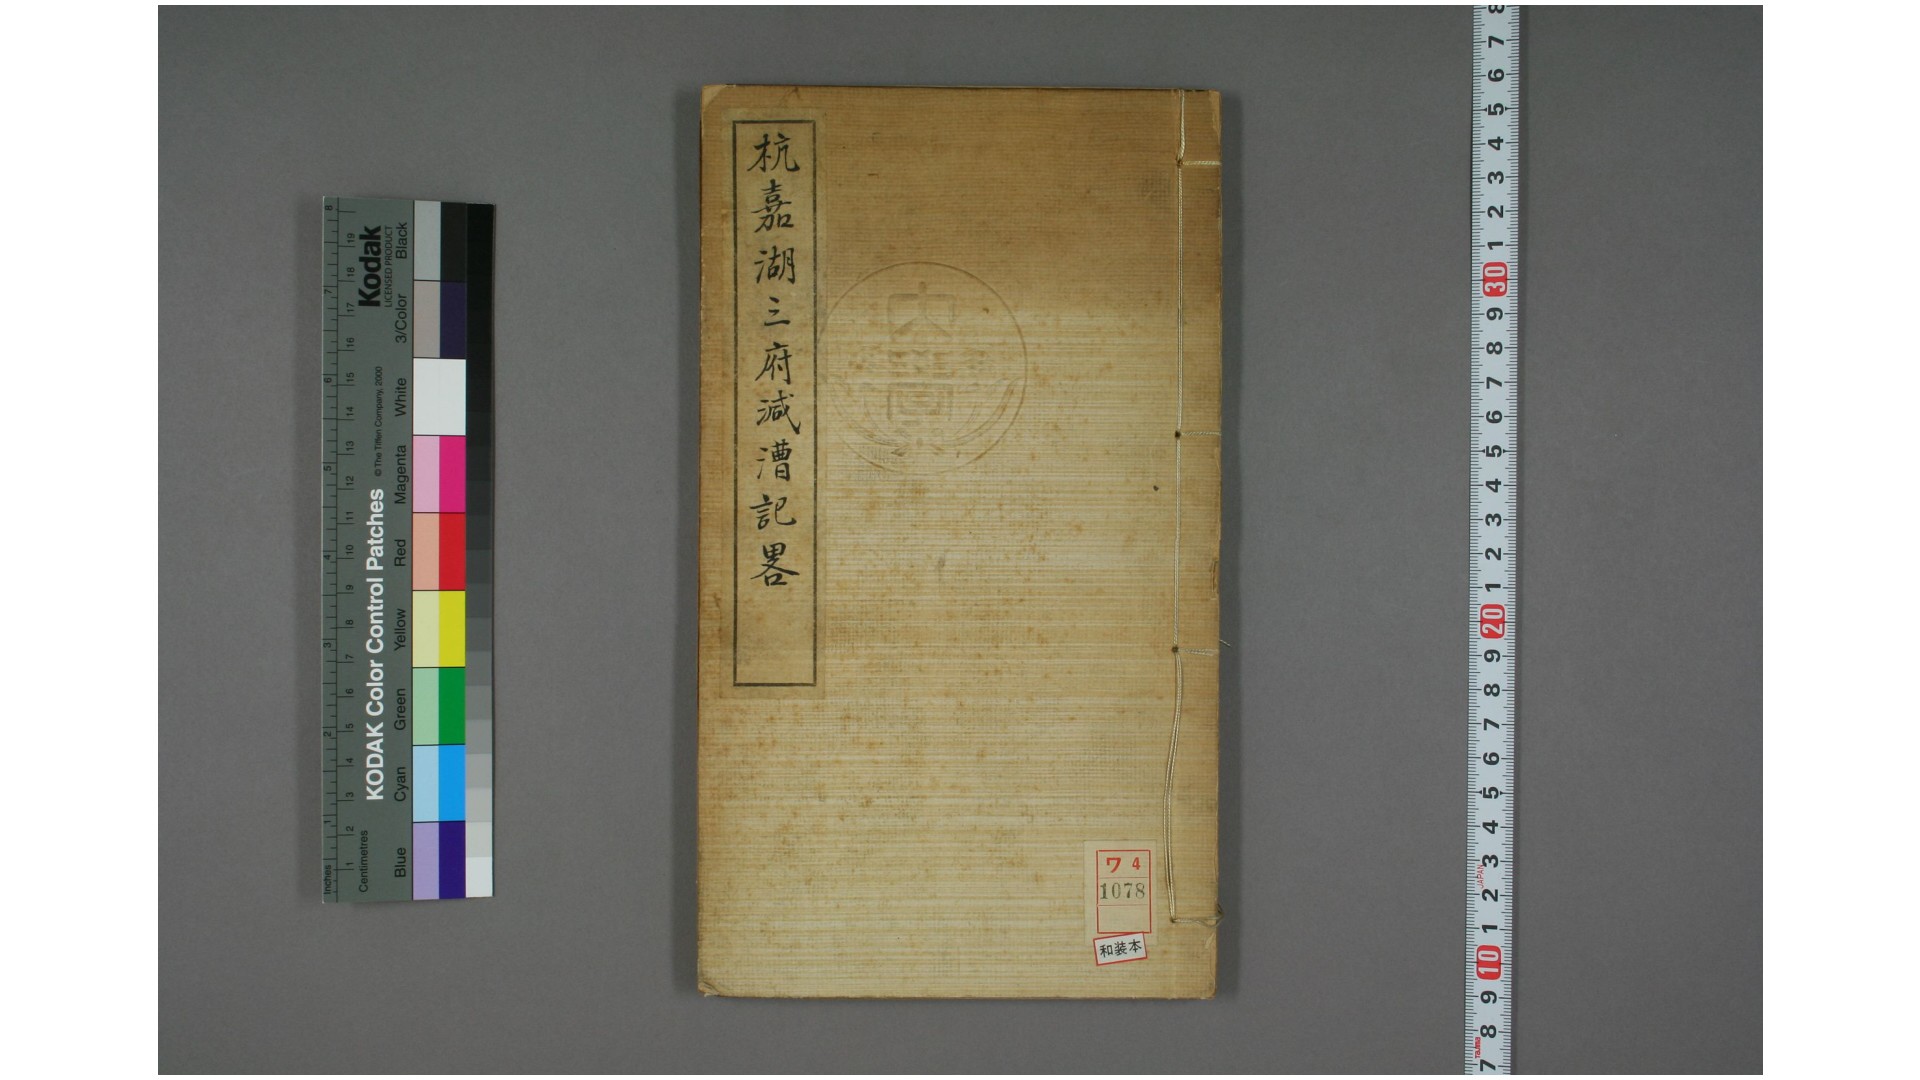 杭嘉湖三府減漕記畧
ワ 4
1078
和装本
Kodak
LICENSED PRODUCT
KODAK Color Control Patches
© The Tiffen Company, 2000
Blue Cyan Green Yellow Red Magenta White 3/Color Black
Centimetres
1 2 3 4 5 6 7 8 9 10 11 12 13 14 15 16 17 18 19
Inches
1 2 3 4 5 6 7 8
8 7 6 5 4 3 2 1 30 9 8 7 6 5 4 3 2 1 20 9 8 7 6 5 4 3 2 1 10 9 8 7
JAPAN
Tajima